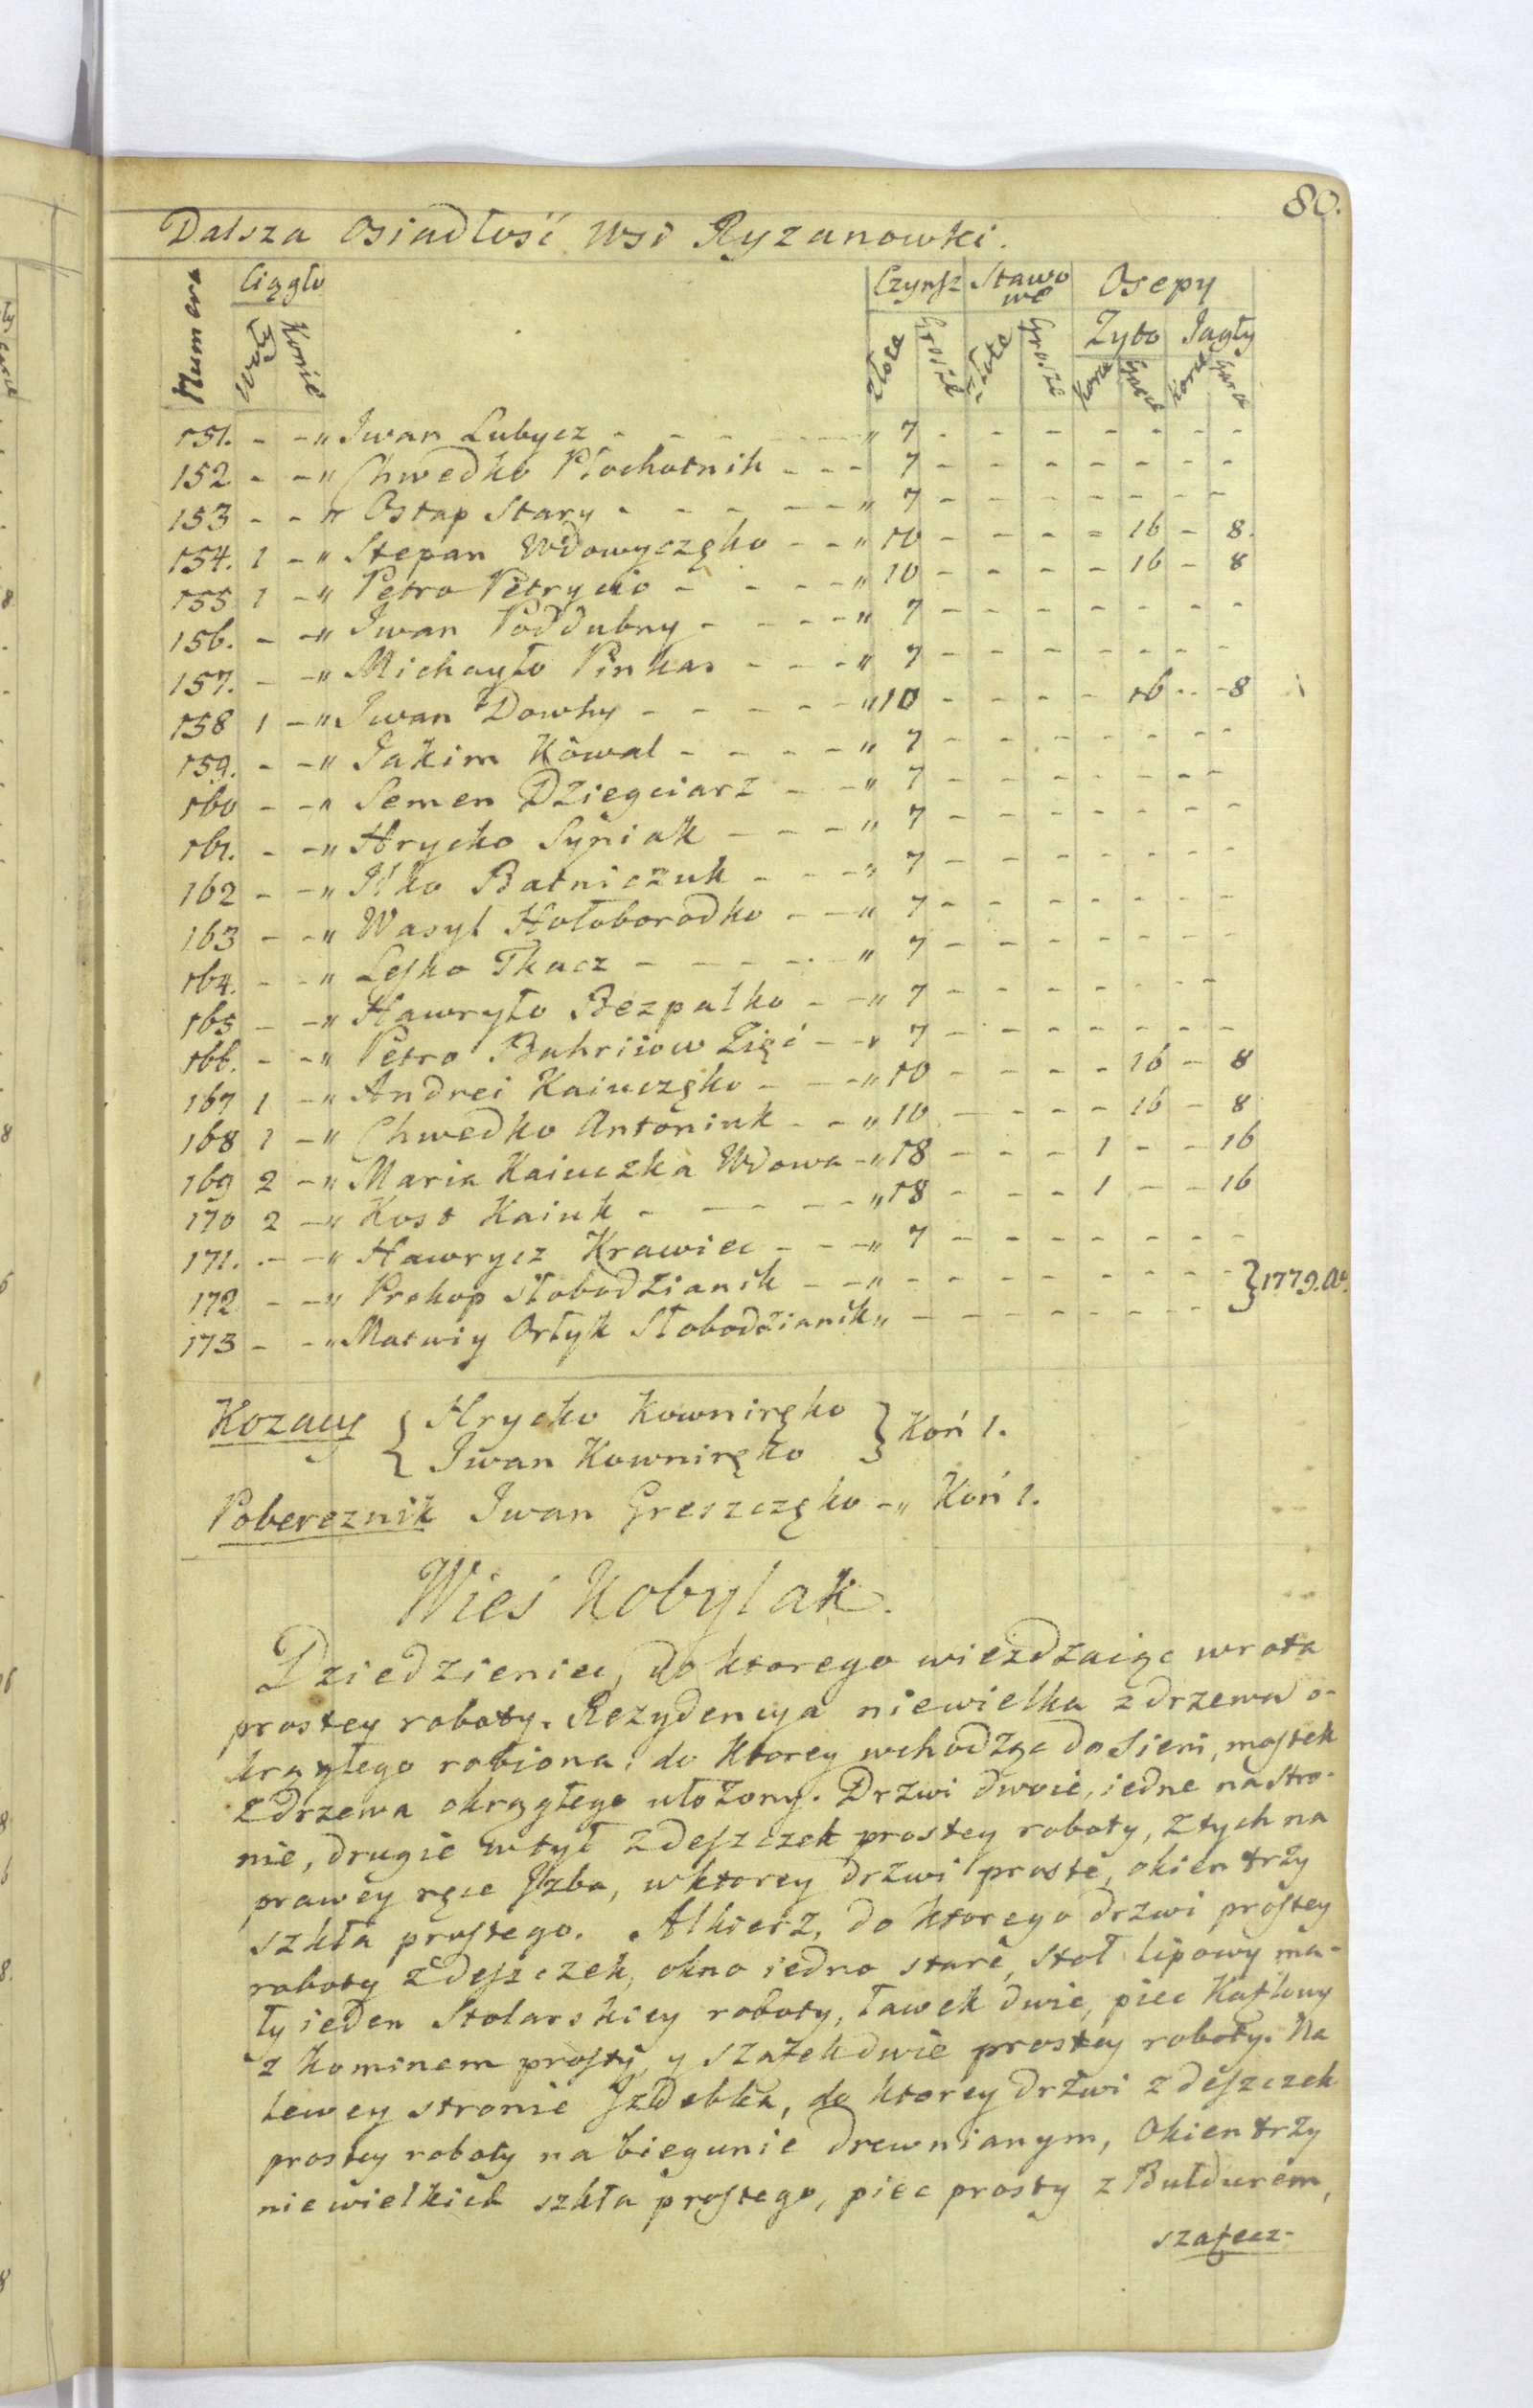 80.
Dalsza Osiadłość Wsi Ryzanowki.
Numera Ciągło Czynsz Stawowe Osepy
Konie Złote Grosze Złote Grosze Żyto Jagły
151. - - " Iwan Lubycz - - - - - " 7 - - - - - - -
152 - - " Chwedko Płochotnik - - - 7 - - - - - - -
153 - - " Ostap Stary - - - - - " 7 - - - - - - -
154. 1 - " Stepan Wdowyczęko - - " 10 - - - - 16 - 8.
155 1 - " Petro Petrycio - - - - " 10 - - - - 16 - 8
156. - - " Iwan Poddubny - - - - " 7 - - - - - - -
157. - - " Michayło Pinkas - - - " 7 - - - - - - -
158 1 - " Iwan Dowhy - - - - - " 10 - - - - 16 - - 8
159. - - " Jakim Kowal - - - - " 7 - - - - - - -
160 - - " Semen Dziegciarz - - " 7 - - - - - - -
161. - - " Hrycko Syniak - - - " 7 - - - - - - -
162 - - " Ilko Batniczuk - - - " 7 - - - - - - -
163 - - " Wasyl Hołoborodko - - " 7 - - - - - - -
164. - - " Leſko Tkacz - - - - - " 7 - - - - - - -
165 - - " Hawryło Bezpalko - - " 7 - - - - - - -
166. - - " Petro Buhriiow Zięć - - " 7 - - - - - - -
167 1 - " Andrei Kaiuczęko - - - " 10 - - - - 16 - 8
168 1 - " Chwedko Antoniuk - - " 10 - - - - 16 - 8
169 2 - " Maria Kaiuczka Wdowa - " 18 - - - 1 - - 16
170 2 - " Kost Kaiuk - - - - - " 18 - - - 1 - - 16
171. - - " Hawrycz Krawiec - - - " 7 - - - - - - -
172 - - " Prokop Słobodzianik - - " - - - - - - - -
173 - - " Matwiy Orłyk Słobodzianik " - - - - - - - - } 1779.
Kozacy { Hrycko Kowniręko
Iwan Kowniręko } Koń 1.
Pobereznik Iwan Greszczęko - " Koń 1.
Wieś Kobylak.
Dziedzieniec, do ktorego wieżdzaiąc wrota
prostey roboty. Rezydencya niewielka z drzewa o-
krągłego robiona: do ktorey wchodząc do Sieni, moſtek
z drzewa okrągłego ułożony. Drzwi dwoie, iedne na stro-
nie, drugie w tył z deſzczek prostey roboty, z tych na
prawey ręce Jzba, w ktorey drzwi proste, okien trzy
szkła proſtego. Alkierz, do ktorego drzwi proſtey
roboty z deſzczek, okno iedno stare, stoł lipowy ma-
ły ieden Stolarskiey roboty, ławek dwie, piec Kaflowy
z kominem proſtÿ, y szafek dwie prostey roboty. Na
lewey stronie Jzdebka, do ktorey drzwi z deſzczek
prostey roboty na biegunie drewnianym, Okien trzy
niewielkich szkła proſtego, piec prosty z Bułdurem,
szafecz-